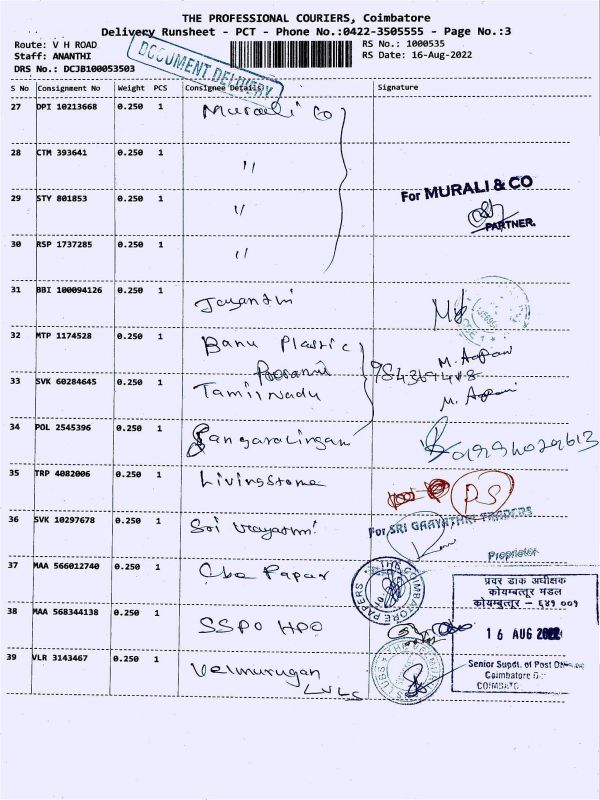 THE PROFESSIONAL COURIERS, Coimbatore
Delivery Runsheet - PCT - Phone No.:0422-3505555 - Page No.:3
Route: V H ROAD
RS No.: 1000535
Staff: ANANTHI
RS Date: 16-Aug-2022
DRS No.: DCJB100053503
DOCUMENT DELIVERY
S No Consignment No Weight PCS Consignee Details Signature
27 DPI 10213668 0.250 1 Murali Co
28 CTM 393641 0.250 1 "
For MURALI & CO
29 STY 801853 0.250 1 "
PARTNER.
30 RSP 1737285 0.250 1 "
31 BBI 100094126 0.250 1 Jayanthi
32 MTP 1174528 0.250 1 Banu Plastic
33 SVK 60284645 0.250 1 Tamil Nadu
34 POL 2545396 0.250 1 Sangaralingam
35 TRP 4082006 0.250 1 Livingstone
PS
36 SVK 10297678 0.250 1 Sri
For SRI GAAYATHRI TRADERS
Proprietor
37 MAA 566012740 0.250 1 Cbe Papar
THE COIMBATORE PAPERS
प्रवर डाक अधीक्षक
कोयम्बत्तूर मंडल
कोयम्बत्तूर - ६४१ ००१
38 MAA 568344138 0.250 1 SSPO HPO
16 AUG 2022
39 VLR 3143467 0.250 1 Velmurugan
Senior Supdt. of Post
Coimbatore